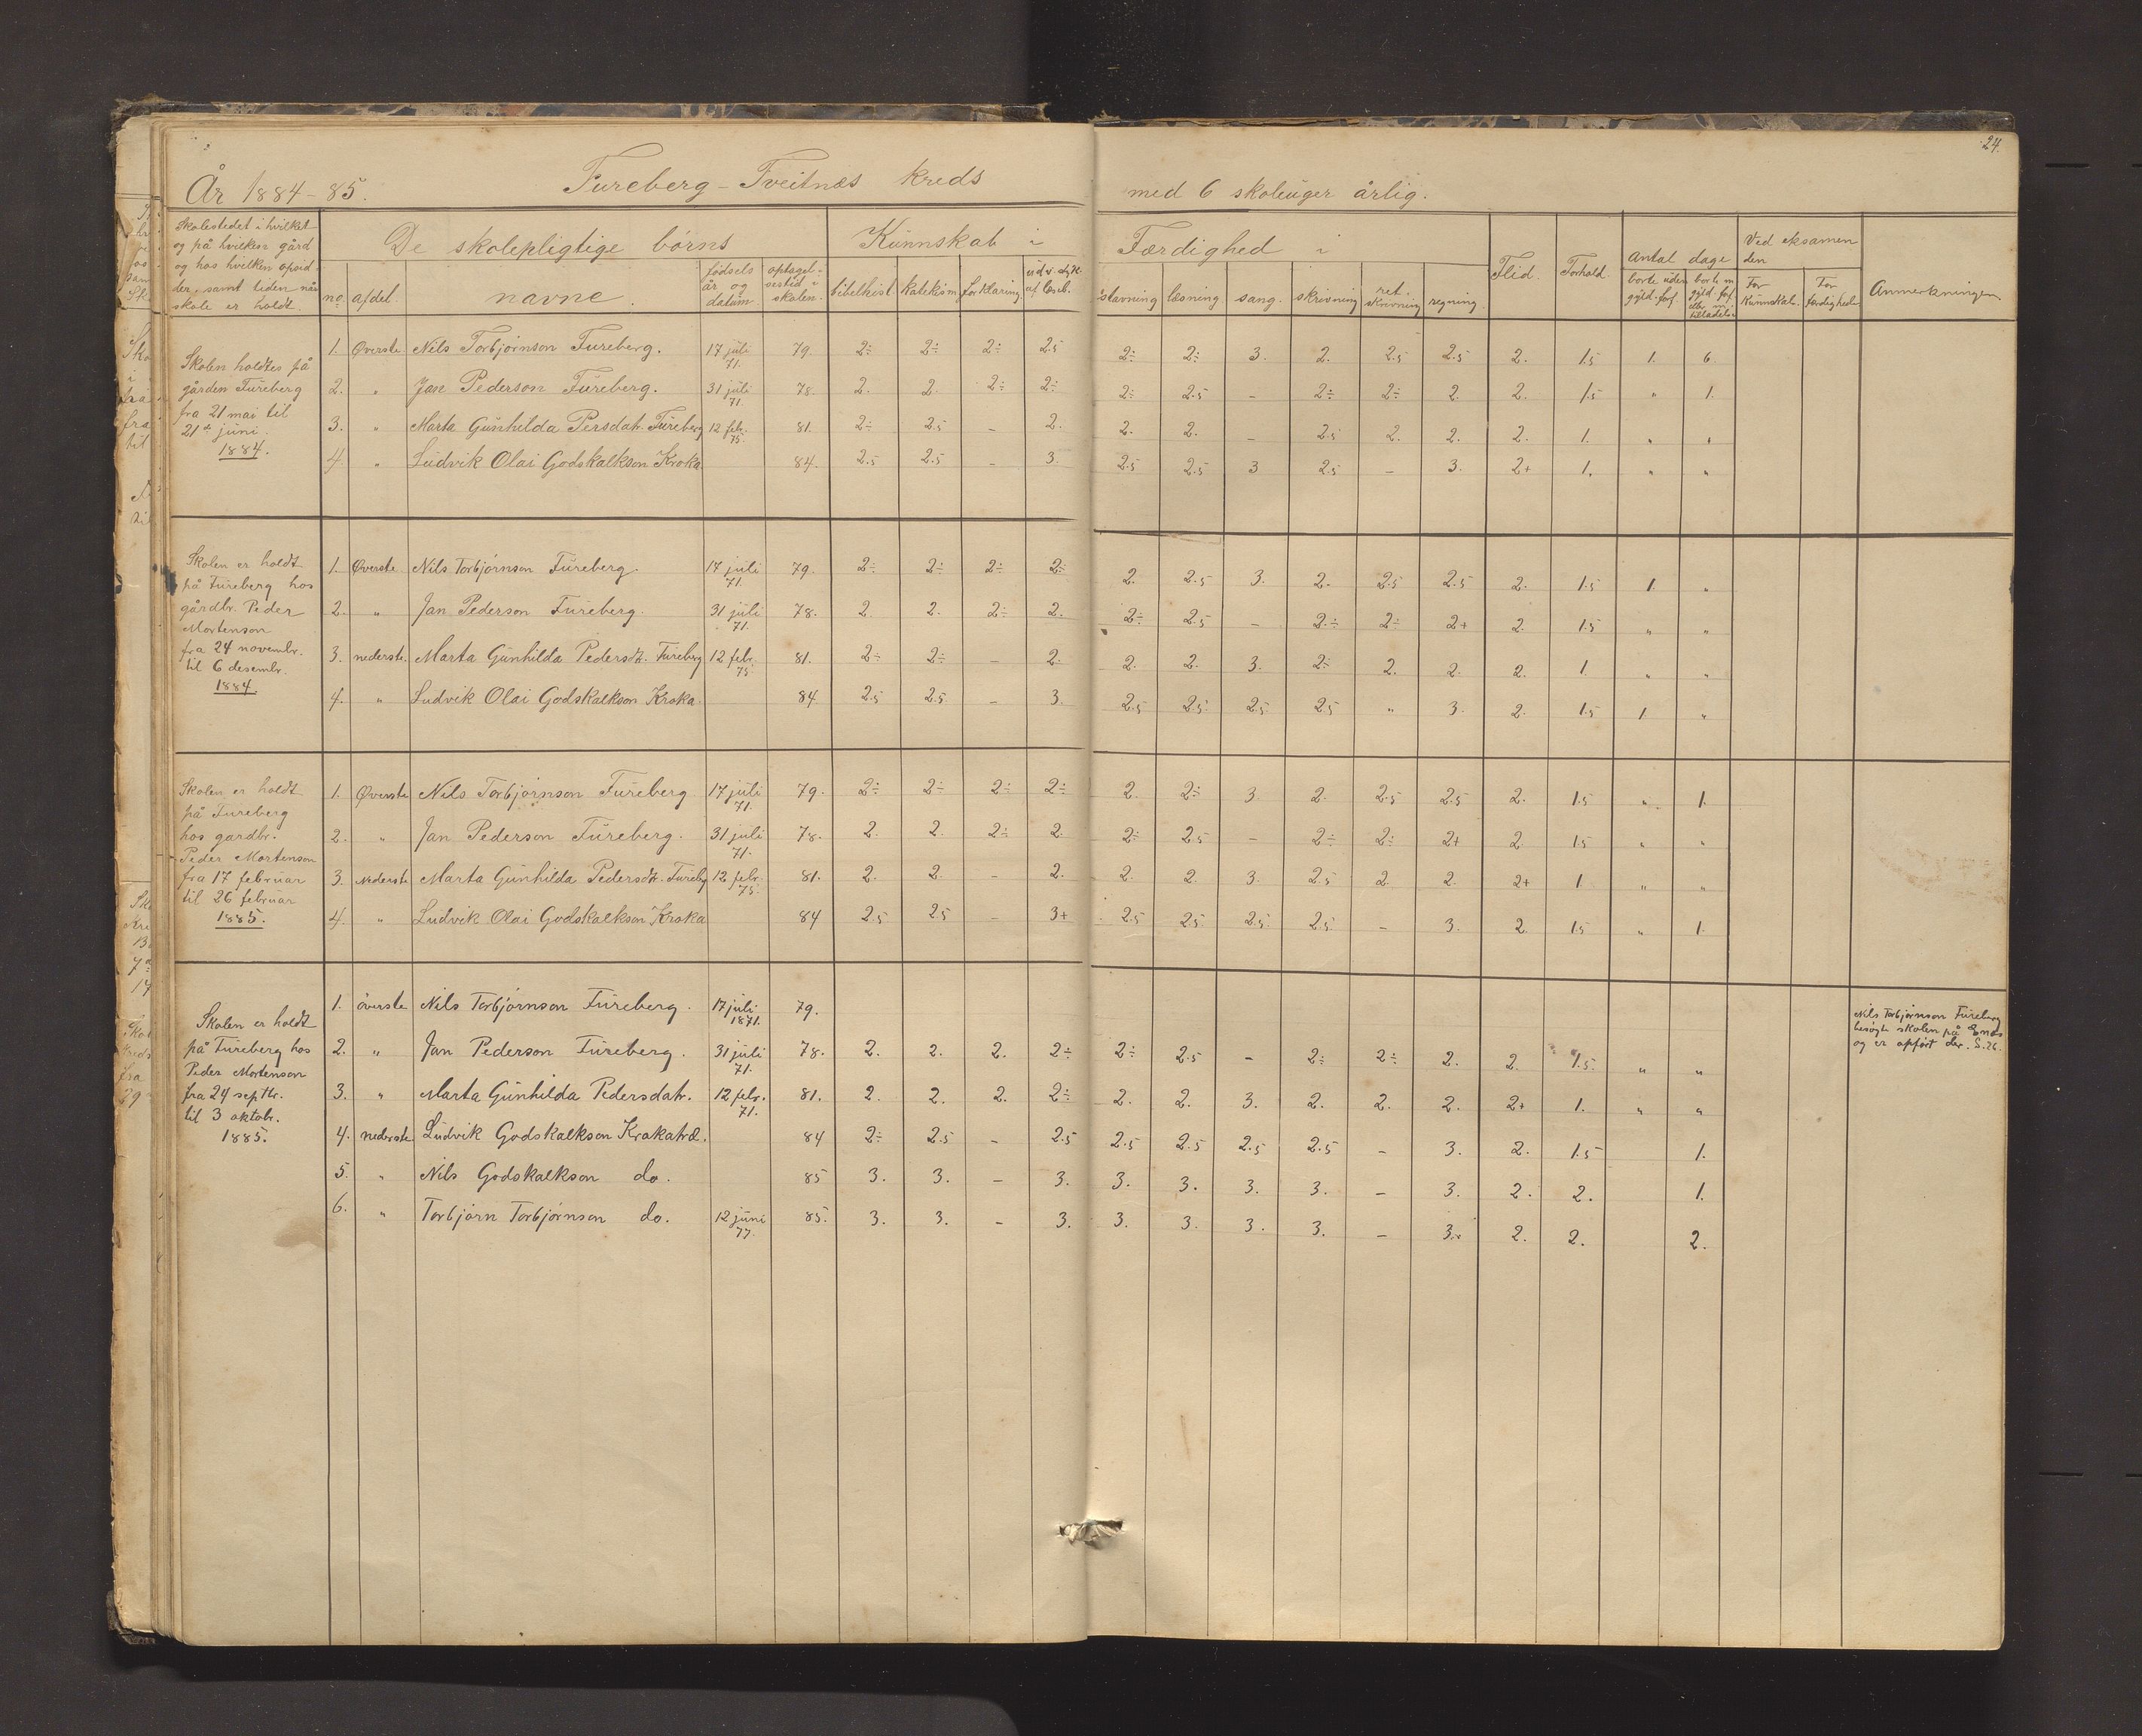 24.
År 1884-85. Fureberg-Tveitnæs kreds med 6 skoleuger årlig.
Skolestedet i hvilket og på hvilken gård og hos hvilken opsidder, samt tiden når skole er holdt.
De skolepligtige børns
no. afdel. navne. fødsels år og datum optagelsestid i skolen.
Kunnskab i
bibelhist. katekism. forklaring. udv. styk. af læseb.
Færdighed i
stavning læsning sang. skrivning retskrivning regning.
Flid. Forhold.
Antal dage
borte uden gyld. forf. borte m. gyld. forf. eller m. tilladelse
Ved eksamen den
For Kunnskab. For færdighed.
Anmerkninger.
Skolen holdtes på
gården Fureberg
fra 21 mai til
21de juni.
1884.
1. Øverste Nils Torbjørnson Fureberg. 17 juli 71. 79. 2÷ 2÷ 2÷ 2.5 2÷ 2÷ 3. 2. 2.5 2.5 2. 1.5 1. 6.
2. " Jan Pederson Fureberg. 31 juli 71. 78. 2. 2. 2÷ 2÷ 2÷ 2.5 – 2÷ 2÷ 2. 2. 1.5 " 1.
3. " Marta Gunhilda Persdatr. Fureberg 12 febr. 75. 81. 2÷ 2.5 – 2. 2. 2. – 2.5 2. 2. 2. 1. " "
4. " Ludvik Olai Godskalkson Kroka 84. 2.5 2.5 – 3. 2.5 2.5 3 2.5 – 3. 2+ 1. " "
Skolen er holdt
på Fureberg hos
gårdbr. Peder
Mortenson
fra 24 novembr.
til 6 desembr.
1884.
1. Øverste Nils Torbjørnson Fureberg. 17 juli 71. 79. 2÷ 2÷ 2÷ 2÷ 2. 2.5 3. 2. 2.5 2.5 2. 1.5 1. "
2. " Jan Pederson Fureberg. 31 juli 71. 78. 2. 2. 2÷ 2. 2÷ 2.5 – 2÷ 2÷ 2+ 2. 1.5 " "
3. nederste. Marta Gunhilda Pedersdtr. Fureberg 12 febr. 75. 81. 2÷ 2÷ – 2. 2. 2. 3. 2÷ 2. 2. 2. 1. " "
4. " Ludvik Olai Godskalkson Kroka. 84. 2.5 2.5 – 3. 2.5 2.5 2.5 2.5 " 3. 2. 1.5 1. "
Skolen er holdt
på Fureberg
hos gardbr.
Peder Mortenson
fra 17 februar
til 26 februar
1885.
1. Øverste Nils Torbjørnson Fureberg 17 juli 71. 79. 2÷ 2÷ 2÷ 2÷ 2. 2÷ 3. 2. 2.5 2.5 2. 1.5 " 1.
2. " Jan Pederson Fureberg. 31 juli 71. 78. 2. 2. 2÷ 2. 2÷ 2.5 – 2÷ 2÷ 2+ 2. 1.5 " "
3. Nederste Marta Gunhilda Pedersdtr. Fureberg 12 febr. 75. 81. 2. 2. – 2. 2. 2. 3. 2.5 2. 2. 2+ 1 " "
4. " Ludvik Olai Godskalkson Kroka 84 2.5 2.5 – 3+ 2.5 2.5 2.5 2.5 – 3. 2. 1.5 " 1.
Skolen er holdt
på Fureberg hos
Peder Mortenson
fra 24 septbr.
til 3 oktobr.
1885.
1. överste Nils Torbjørnson Fureberg. 17 juli 1871. 79.
Nils Torbjørnson Fureberg
besøgte skolen på Enæs
og er opført der. S.26.
2. " Jan Pederson Fureberg. 31 juli 71. 78. 2. 2. 2. 2÷ 2÷ 2.5 – 2÷ 2÷ 2. 2. 1.5 " "
3. " Marta Gunhilda Pedersdatr. 12 febr. 71. 81. 2. 2. 2. 2÷ 2. 2. 3. 2. 2. 2. 2+ 1. " "
4. nederste Ludvik Godskalkson Krakatræ. 84 2÷ 2.5 – 2.5 2.5 2.5 2.5 2.5 – 3. 2. 1.5 1.
5. " Nils Godskalkson do. 85 3. 3. – 3. 3. 3. 3. 3. – 3. 2. 2. 1.
6. " Torbjørn Torbjørnson do. 12 juni 77. 85. 3. 3. – 3. 3. 3. 3. 3. – 3. 2. 2. 2.